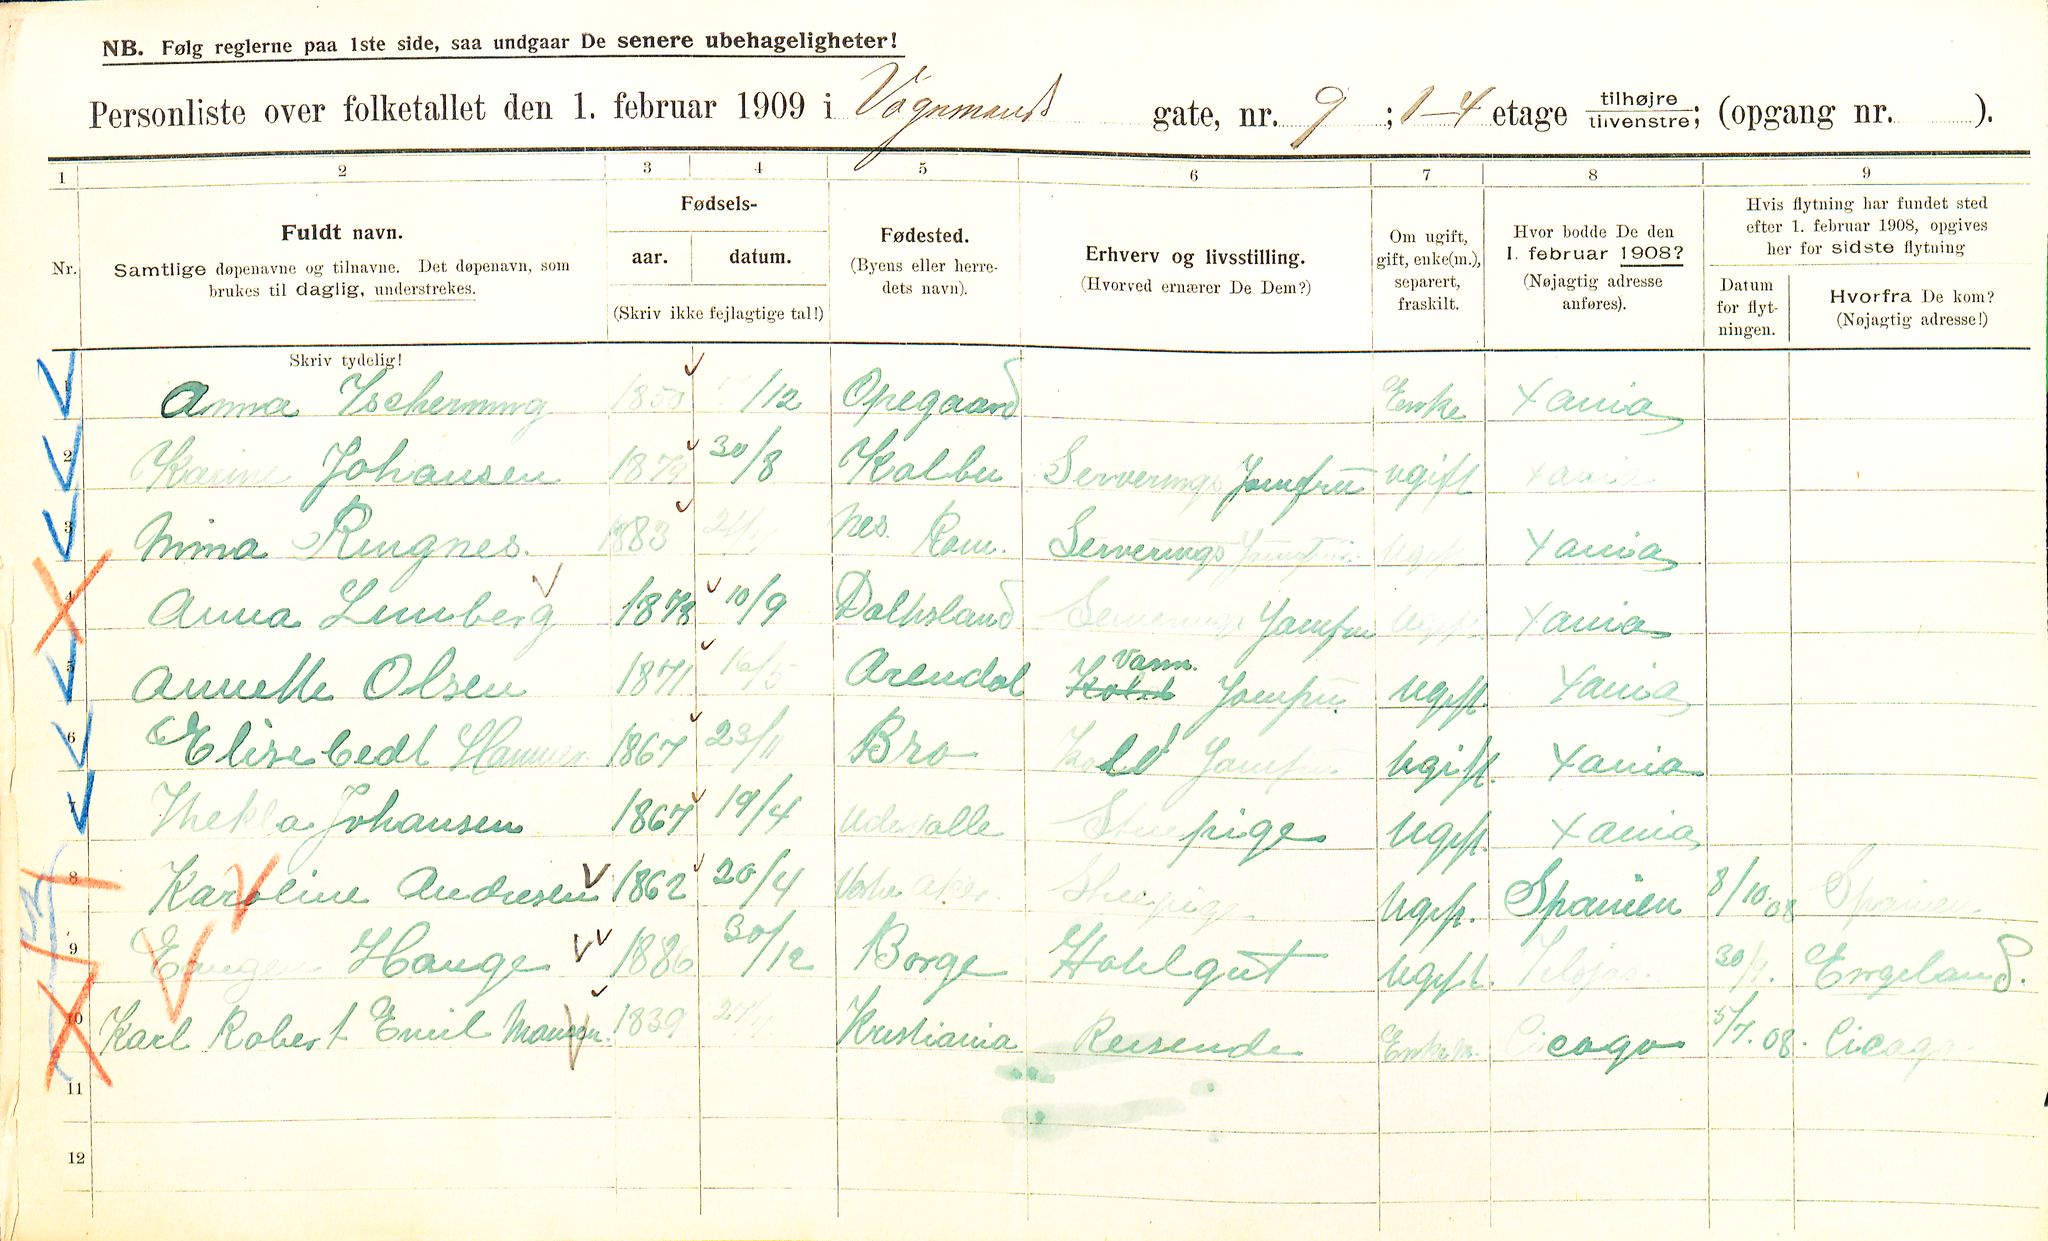 NB. Følg reglerne paa 1ste side, saa undgaar De senere ubehageligheter!
Personliste over folketallet den 1. februar 1909 i Vognmands gate, nr. 9 ; 1-4 etage tilhøjre tilvenstre; (opgang nr. ).
1 2 3 4 5 6 7 8 9
Nr.
Fuldt navn.
Samtlige døpenavne og tilnavne. Det døpenavn, som
brukes til daglig, understrekes.
Fødsels-
aar. datum.
(Skriv ikke fejlagtige tal!)
Fødested.
(Byens eller herre-
dets navn).
Erhverv og livsstilling.
(Hvorved ernærer De Dem?)
Om ugift,
gift, enke(m.),
separert,
fraskilt.
Hvor bodde De den
1. februar 1908?
(Nøjagtig adresse
anføres).
Hvis flytning har fundet sted
efter 1. februar 1908, opgives
her for sidste flytning
Datum
for flyt-
ningen.
Hvorfra De kom?
(Nøjagtig adresse!)
Skriv tydelig!
1 Anna Tscherning 1850 /12 Opegaard Enke Xania
2 Karine Johansen 1879 30/8 Kolbu Serverings Jomfru ugift Xania
3 Ninna Ringnes. 1883 Nes. Rom. Serverings Jomfru Ugift Xania
4 Anna Limberg 1878 10/9 Dalhsland Serverings Jomfru Ugift Xania
5 Annette Olsen 1871 16/5 Arendal Varm. Jomfru. Ugift. Xania
6 Elisebedt Hammer 1867 23/11 Bro Kold Jomfru Ugift. Xania
7 Thekla Johansen 1867 19/4 Udevalle Stuepige Ugift. Xania
8 Karoline Andresen 1862 20/4 Vestre Aker. Stuepige Ugift. Spanien 8/10 08 Spanien
9 Eugen Hauge 1886 30/12 Borge Hotelgut Ugift. 30/9. Engeland.
10 Karl Robert Emil 1839 Kristiania Reisende Enkem. Cicago 5/7. 08. Cicago
11
12